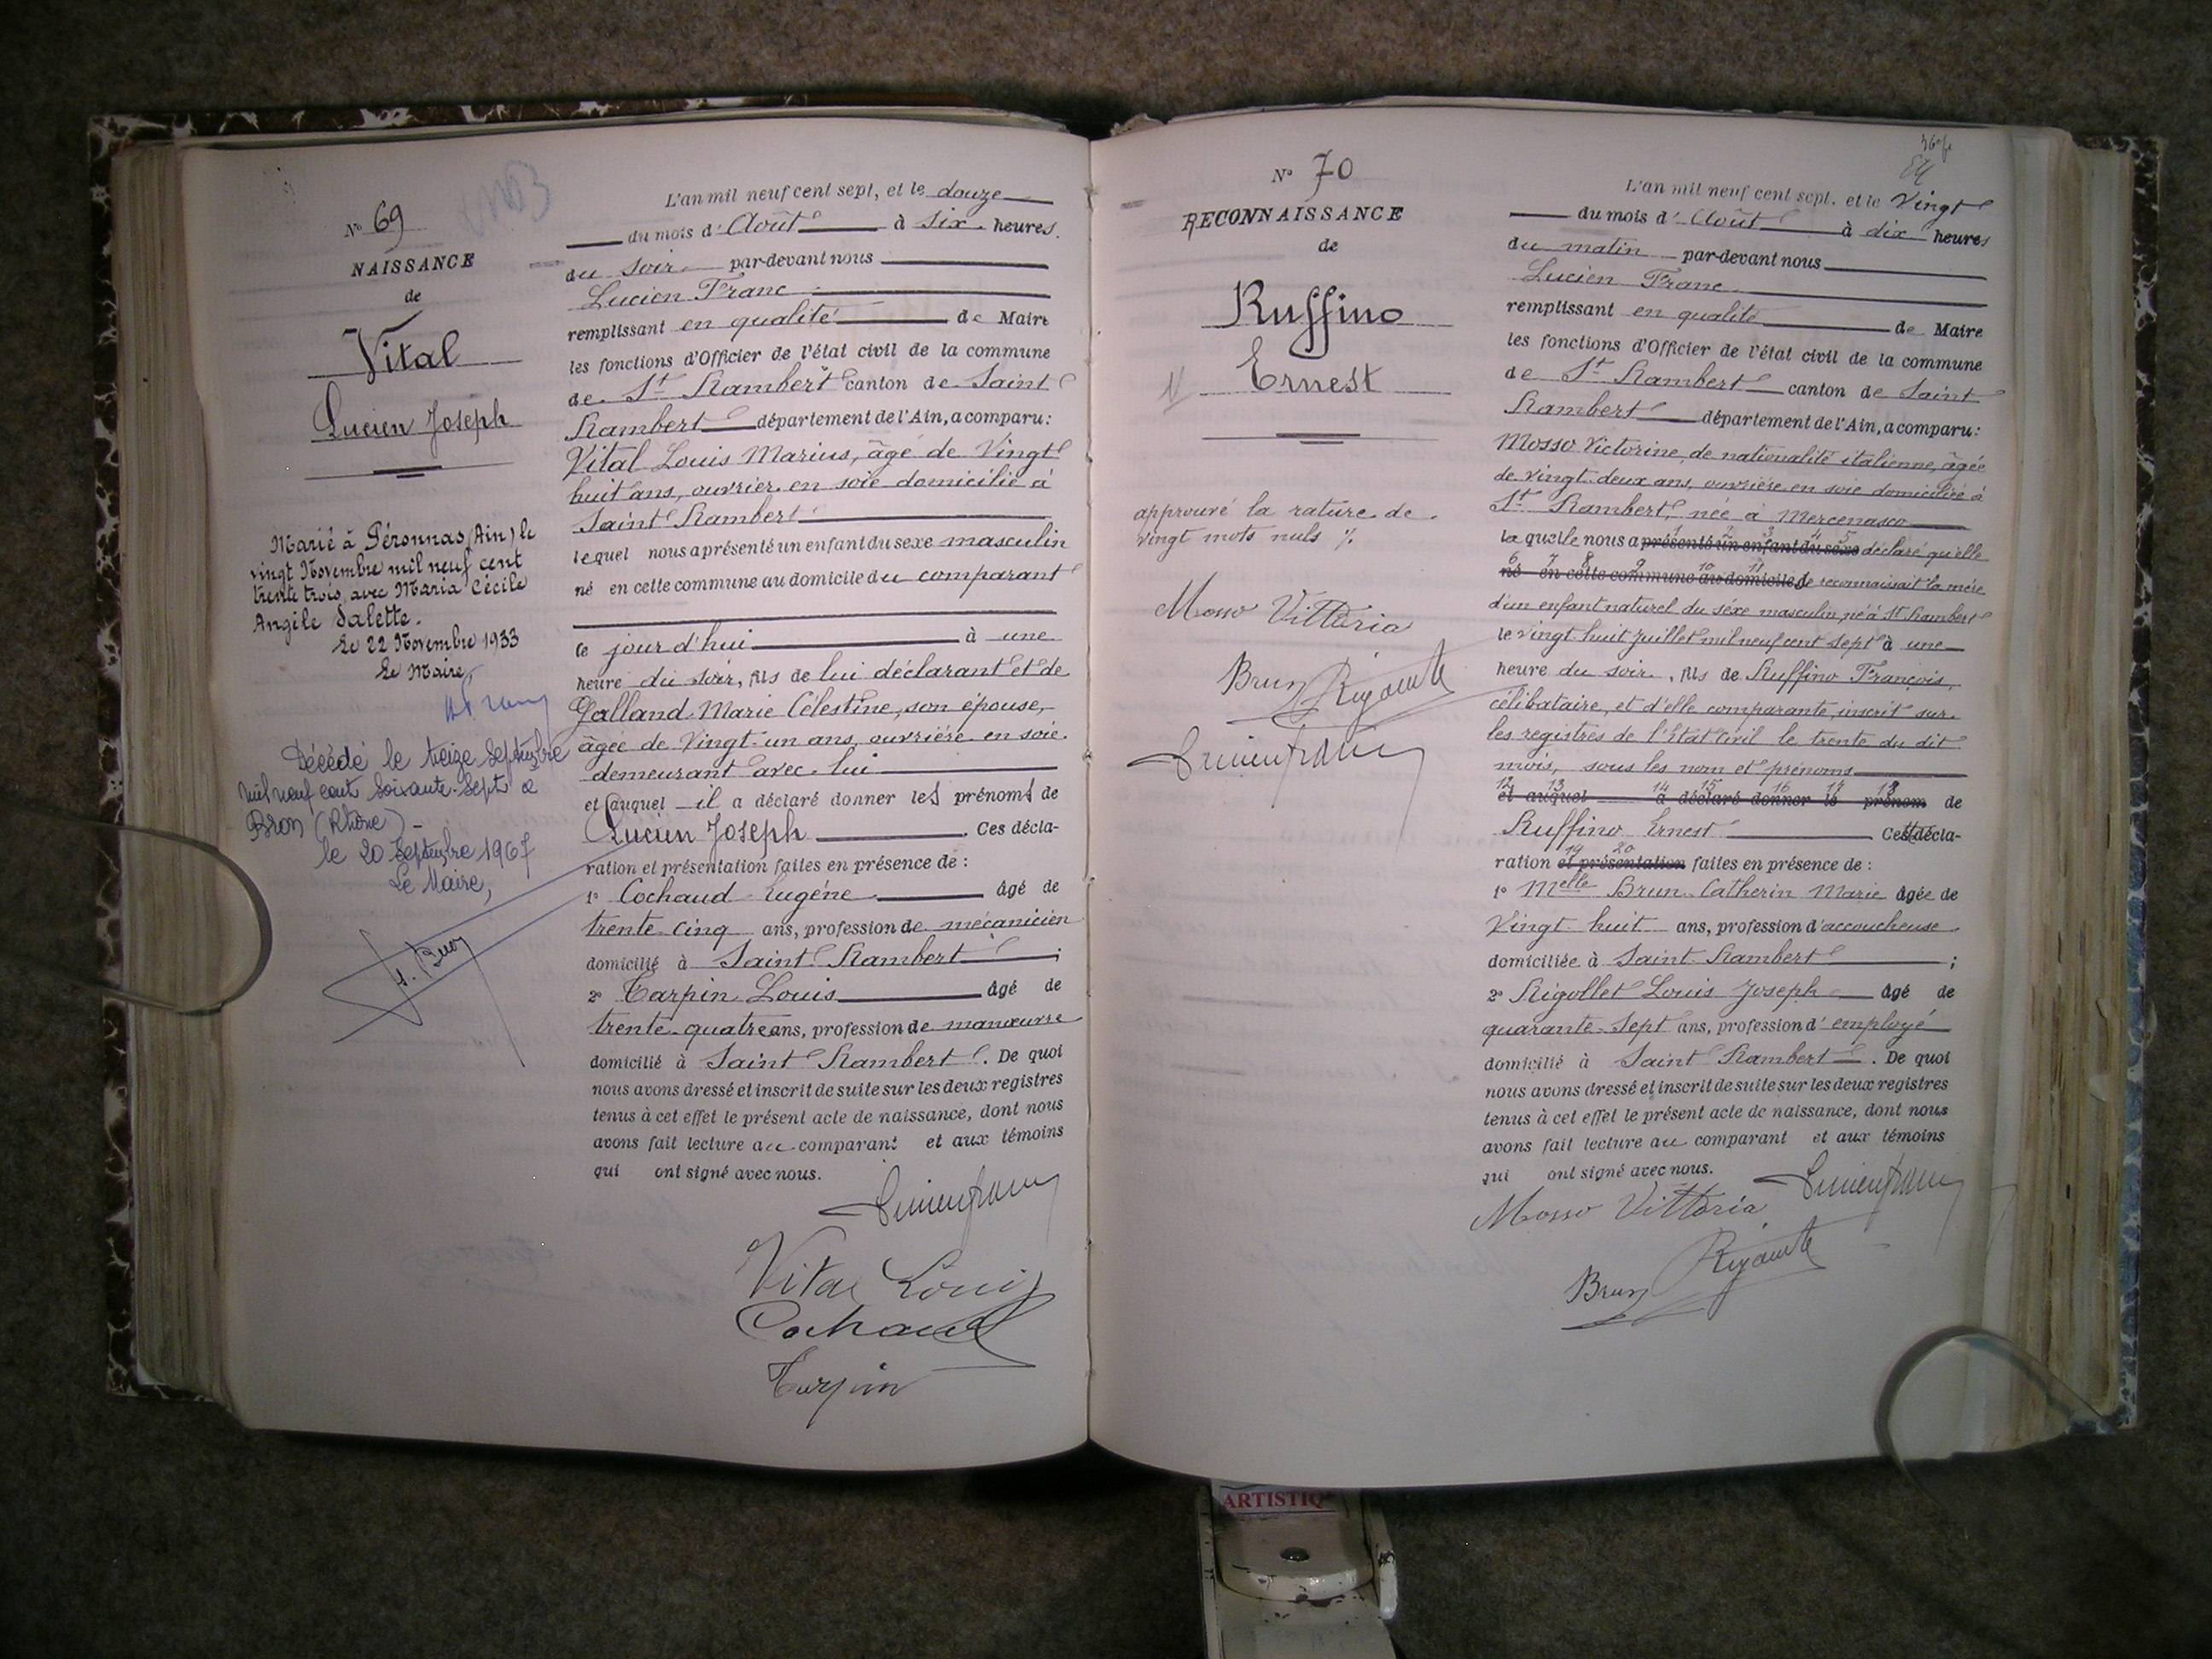 N° 69
NAISSANCE
de
Vital
Lucien Joseph
Marié à Péronnas (Ain) le
vingt Novembre mil neuf cent
trente trois, avec Maria Cécile
Angèle Salette.
Le 22 Novembre 1933
Le Maire
Décédé le treize Septembre
mil neuf cent soixante-sept à
Bron (Rhône) -
le 20 Septembre 1967
Le Maire,
L'an mil neuf cent sept, et le douze
du mois d'Août à six heures
du soir par-devant nous
Lucien Franc
remplissant en qualité de Maire
les fonctions d'Officier de l'état civil de la commune
de St Rambert canton de Saint
Rambert département de l'Ain, a comparu:
Vital Louis Marius, âgé de Vingt
huit ans, ouvrier en soie domicilié à
Saint Rambert
lequel nous a présenté un enfant du sexe masculin
né en cette commune au domicile du comparant
ce jour d'hui à une
heure du soir, fils de lui déclarant et de
Galland Marie Célestine, son épouse,
âgée de Vingt-un ans, ouvrière en soie
demeurant avec lui
et auquel il a déclaré donner les prénoms de
Lucien Joseph. Ces décla-
ration et présentation faites en présence de :
1° Cochaud Eugène âgé de
trente cinq ans, profession de mécanicien
domicilié à Saint Rambert ;
2° Tarpin Louis âgé de
trente-quatre ans, profession de manœuvre
domicilié à Saint Rambert. De quoi
nous avons dressé et inscrit de suite sur les deux registres
tenus à cet effet le présent acte de naissance, dont nous
avons fait lecture au comparant et aux témoins
qui ont signé avec nous.
Lucien Franc
Vital Louis
Cochaud
Tarpin
N° 70
RECONNAISSANCE
de
Ruffino
Ernest
approuvé la rature de
vingt mots nuls
Mosso Vittoria
Brun
Lucien Franc
L'an mil neuf cent sept, et le Vingt
du mois d'Août à dix heures
du matin par-devant nous
Lucien Franc
remplissant en qualité de Maire
les fonctions d'Officier de l'état civil de la commune
de St Rambert canton de Saint
Rambert département de l'Ain, a comparu:
Mosso Victorine, de nationalité italienne, âgée
de vingt-deux ans, ouvrière en soie domiciliée à
St Rambert, née à Mercenasco
laquelle nous a présenté un enfant du sexe déclaré qu'elle
6 7 8 9 10 11
né en cette commune au domicile de se reconnaissait la mère
d'un enfant naturel du sexe masculin, né à St Rambert
le vingt huit Juillet mil neuf cent sept à une
heure du soir, fils de Ruffino François,
célibataire, et d'elle comparante, inscrit sur
les registres de l'Etat Civil le trente du dit
mois, sous les nom et prénoms
12 13 14 15 16 17 18
et auquel a déclaré donner le prénom de
Ruffino Ernest. Cette décla-
19 20
ration et présentation faites en présence de :
1° Melle Brun Catherin Marie âgée de
Vingt huit ans, profession d'accoucheuse
domiciliée à Saint Rambert ;
2° Rigollet Louis Joseph âgé de
quarante-sept ans, profession d'employé
domicilié à Saint Rambert. De quoi
nous avons dressé et inscrit de suite sur les deux registres
tenus à cet effet le présent acte de naissance, dont nous
avons fait lecture au comparant et aux témoins
qui ont signé avec nous.
Lucien Franc
Mosso Vittoria
Brun
ARTISTIQ